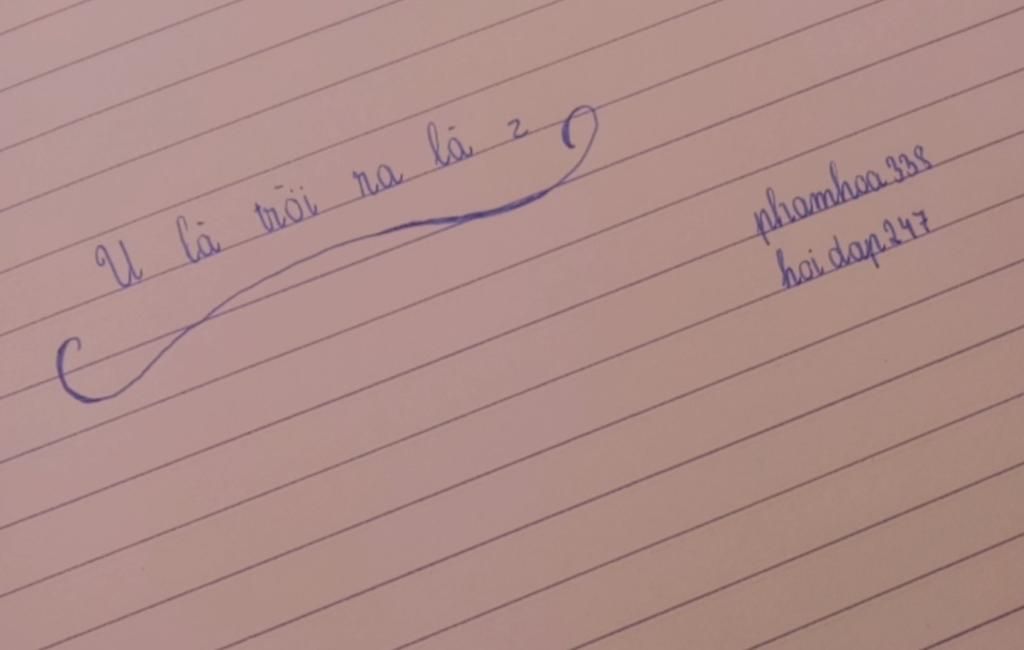 U là trời ra là 2
phamhoa338
hoidap247